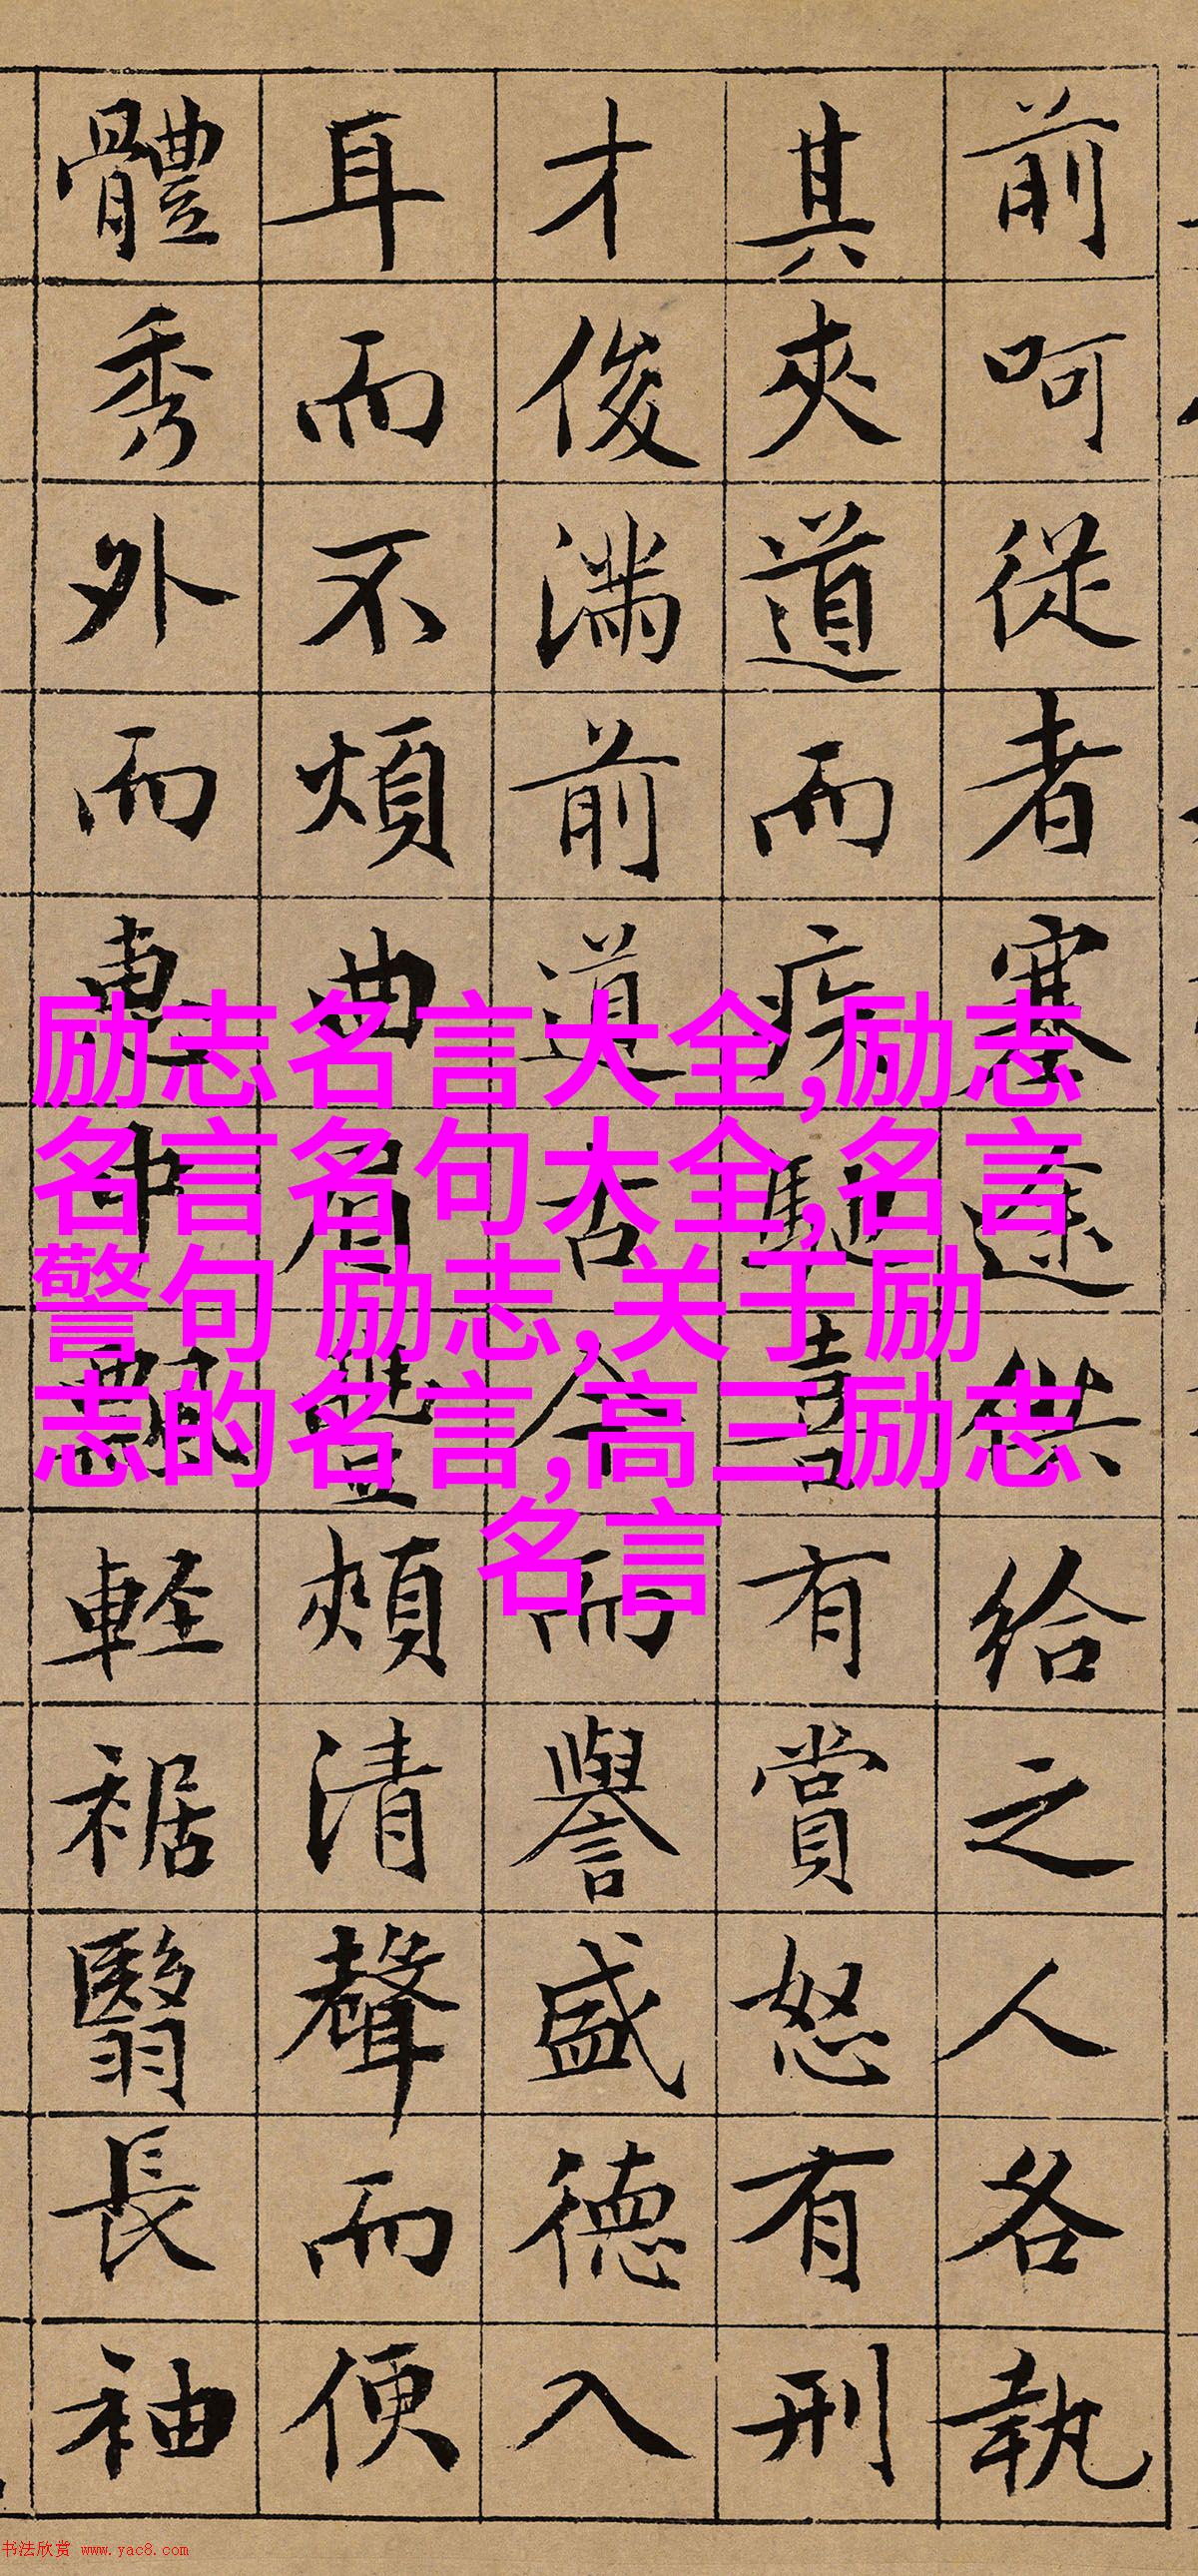 前呵從者塞途供給之人各執
其夾道而疾馳喜有賞怒有刑
才俊滿前道古今而譽盛德入
耳而不煩曲眉豐頰清聲而便
體秀外而惠中飄軽裾翳長袖
励志名言大全,励志
名言名句大全,名言
警句 励志,关于励
志的名言,高三励志
名言
书法欣赏 www.yac8.com